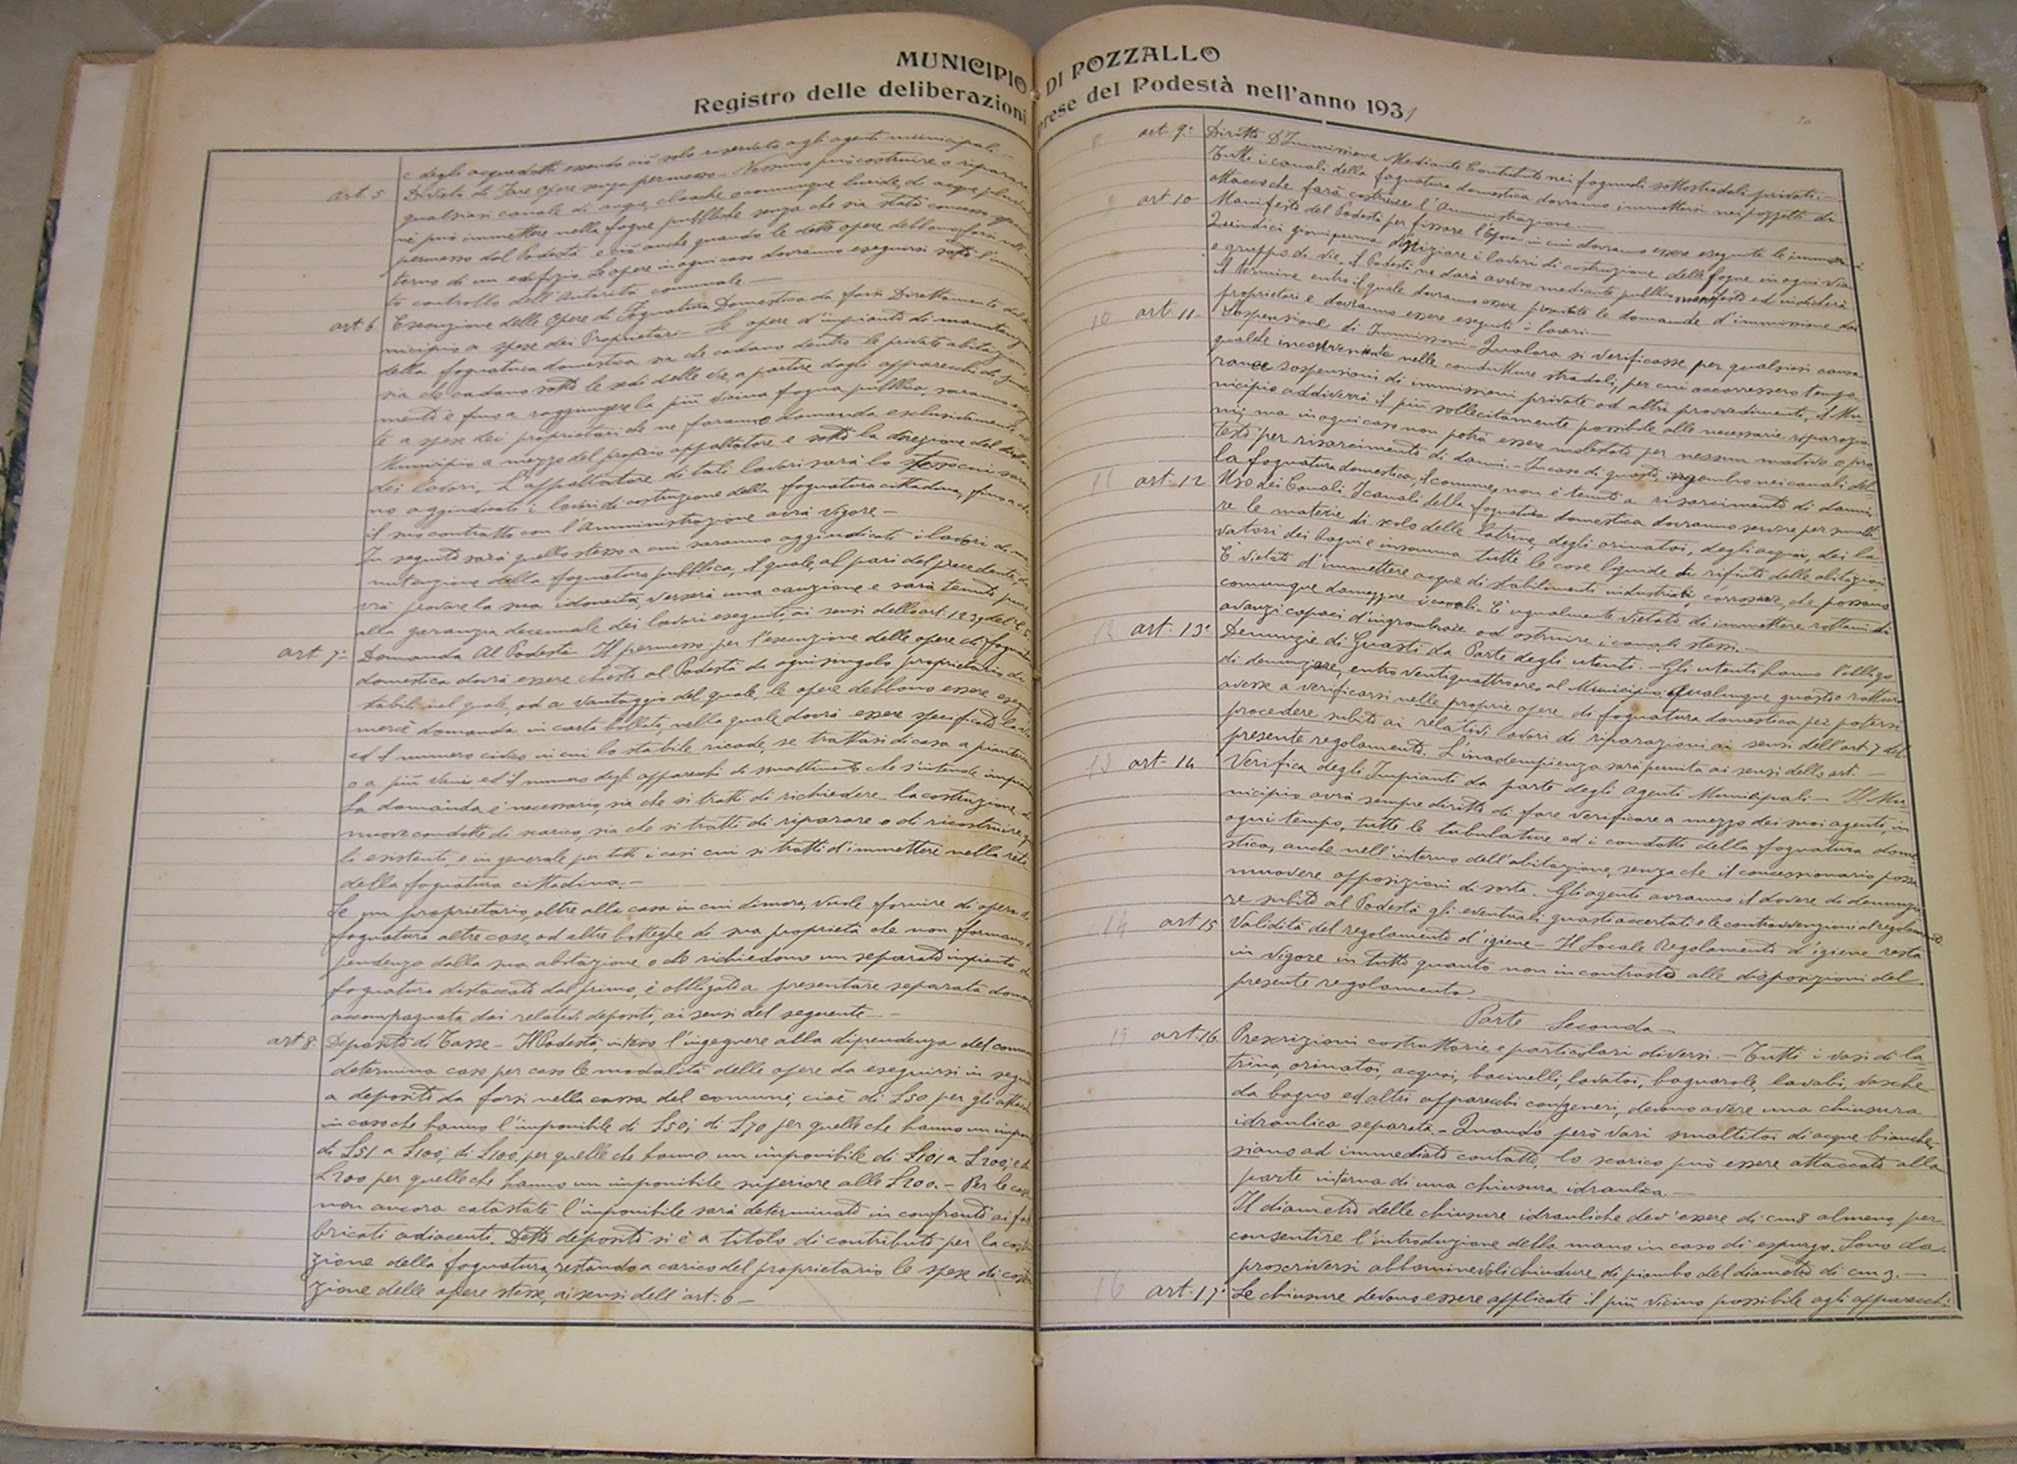 MUNICIPIO DI POZZALLO
Registro delle deliberazioni prese del Podestà nell'anno 1931
e degli acquedotti essendo ciò solo riservato agli agenti municipali.-
art. 5 Divieto di Fare opere senza permesso - Nessuno può costruire o riparare
qualsiasi canale di acque, cloache o comunque luride, di acque
nè può immettere nelle fogne pubbliche senza che sia stato concesso
permesso dal Podestà e ciò anche quando le dette opere debbono farsi nell'in-
terno di un edifizio. Le opere in ogni caso dovranno eseguirsi sotto l'
to controllo dell'Autorità comunale.-
art. 6 Esecuzione delle Opere di Fognatura Domestica da farsi Direttamente dal
nicipio a spese dei Proprietari - Le opere d'impianto di
della fognatura domestica sia che cadano dentro le private abitazioni,
sia che cadano sotto le sedi delle vie, a partire dagli apparecchi di
mento e fino a raggiungere la più vicina fogna pubblica, saranno
te a spese dei proprietari che ne faranno domanda esclusivamente al
Municipio a mezzo del proprio appaltatore e sotto la direzione del
dei lavori. L'appaltatore di tali lavori sarà lo stesso cui
no aggiudicati i lavori di costruzione della fognatura cittadina, fino a che
il suo contratto con l'Amministrazione avrà vigore -
In seguito sarà quello stesso a cui saranno aggiudicati i lavori di
nutenzione della fognatura pubblica, il quale, al pari del precedente,
vrà provare la sua idoneità, verserà una cauzione e sarà tenuto pure
alla garanzia decennale dei lavori eseguiti, ai sensi dell'art. 1239 del C.C.
art. 7- Domanda Al Podestà - Il permesso per l'esecuzione delle opere di fognatura
domestica dovrà essere chiesto al Podestà da ogni singolo proprietario di
stabili nel quale, od a vantaggio del quale, le opere debbono essere
mercè domanda in carta bollata, nella quale dovrà essere specificato la via
ed il numero civico in cui lo stabile ricade, se trattasi di casa a pianterreno
o a più vani ed il numero degli apparecchi di smaltimento che s'intende
La domanda è necessaria, sia che si tratti di richiedere la costruzione di
nuove condotte di scarico, sia che si tratti di riparare o di ricostruire
le esistenti, e in generale per tutti i casi cui si tratti d'immettere nella rete
della fognatura cittadina.-
Se un proprietario, oltre alla casa in cui dimora, vuole fornire di opere di
fognatura altre case, od altre botteghe di sua proprietà che non formano
pendenza dalla sua abitazione o che richiedono un separato impianto di
fognatura distaccato dal primo, è obbligato a presentare separata
accompagnata dai relativi depositi, ai sensi del seguente - -
art 8. Deposito di Tasse - Il Podestà, inteso l'ingegnere alla dipendenza del comune
determina caso per caso le modalità delle opere da eseguirsi in
a deposito da farsi nella cassa del comune, cioè di £50 per gli
in caso che hanno l'imponibile di £50; di £70 per quelle che hanno un
di £51 a £100; di £100, per quelle che hanno un imponibile di £101 a £200; e di
£200 per quelle che hanno un imponibile superiore alle £200. - Per le case
non ancora catastate l'imponibile sarà determinato in confronto ai fab-
bricati adiacenti. Detto deposito si è a titolo di contributo per la costru-
zione della fognatura, restando a carico del proprietario le spese di costru-
zione delle opere stesse, ai sensi dell'art. 6 -
8 art 9: Diritto D'Immissione Mediante Contributi nei fognoli sottostradali privati.-
Tutti i canali della fognatura domestica dovranno immettersi nei pozzetti di
attacco che farà costruire l'Amministrazione.-
9 art 10- Manifesto del Podestà per fissare l'Epoca in cui dovranno essere eseguite le immissioni
Quindici giorni prima d'iniziare i lavori di costruzione delle fogne in ogni via
o gruppo di vie, il Podestà ne darà avviso mediante pubblico manifesto ed indicherà
il termine entro il quale dovranno essere presentate le domande d'immissione dai
proprietari e dovranno essere eseguiti i lavori.-
10 art 11- Sospensione di Immissioni - Qualora si verificasse per qualsiasi causa
qualche inconveniente nelle condutture stradali, per cui occorressero tempo-
ranee sospensioni di immissioni private od altri provvedimenti, il Mu-
nicipio addiverrà il più sollecitamente possibile alle necessarie riparazio-
ni; ma in ogni caso non potrà essere molestato per nessun motivo o pre-
testo per risarcimento di danni. - In caso di guasti, ingombro nei canali del-
la fognatura domestica, il comune, non è tenuto a risarcimento di danni.
11 art. 12 Uso dei Canali. I canali della fognatura domestica dovranno servire per smalti-
re le materie di scolo delle latrine, degli orinatoi, degli acquai, dei la-
vatoi dei bagni e insomma tutte le cose liquide di rifiuto delle abitazioni
È vietato d'immettere acque di stabilimenti industriali, corrosive, che possano
comunque danneggiare i canali. È ugualmente vietato di immettere rottami di
avanzi capaci d'ingombrare od ostruire i canali stessi.-
12 art. 13: Denunzie di Guasti da Parte degli utenti. - Gli utenti hanno l'obbligo
di denunziare, entro ventiquattrore, al Municipio qualunque guasto o rottura
avesse a verificarsi nelle proprie opere di fognatura domestica per potersi
procedere subito ai relativi lavori di riparazioni ai sensi dell'art. 7 del
presente regolamento. L'inadempienza sarà punita ai sensi dello art. -
13 art- 14 Verifica degli Impianti da parte degli Agenti Municipali - Il Mu-
nicipio avrà sempre diritto di fare verificare a mezzo dei suoi agenti, in
ogni tempo, tutte le tubulature ed i condotti della fognatura dome-
stica, anche nell'interno dell'abitazione, senza che il concessionario possa
muovere opposizioni di sorta. Gli agenti avranno il dovere di denunzia-
re subito al Podestà gli eventuali guasti accertati e le contravvenzioni al regolamento
14 art 15 Validità del regolamento d'igiene - Il Locale Regolamento d'igiene resta
in vigore in tutto quanto non in contrasto alle disposizioni del
presente regolamento.
Parte Seconda -
15 art. 16. Prescrizioni costruttorie e particolari diversi. - Tutti i vasi di la-
trina, orinatoi, acquai, bacinelli, lavatoi, bagnarole, lavabi, vasche
da bagno ed altri apparecchi congeneri, devono avere una chiusura
idraulica separata - Quando però vari smaltitoi di acque bianche
siano ad immediato contatto, lo scarico può essere attaccato alla
parte interna di una chiusura idraulica.-
Il diametro delle chiusure idrauliche dev'essere di cm8 almeno per
consentire l'introduzione della mano in caso di espurgo. Sono da
proscriversi abbominevoli chiudure di piombo del diametro di cm 3.-
16 art. 17: Le chiusure devono essere applicate il più vicino possibile agli apparecchi